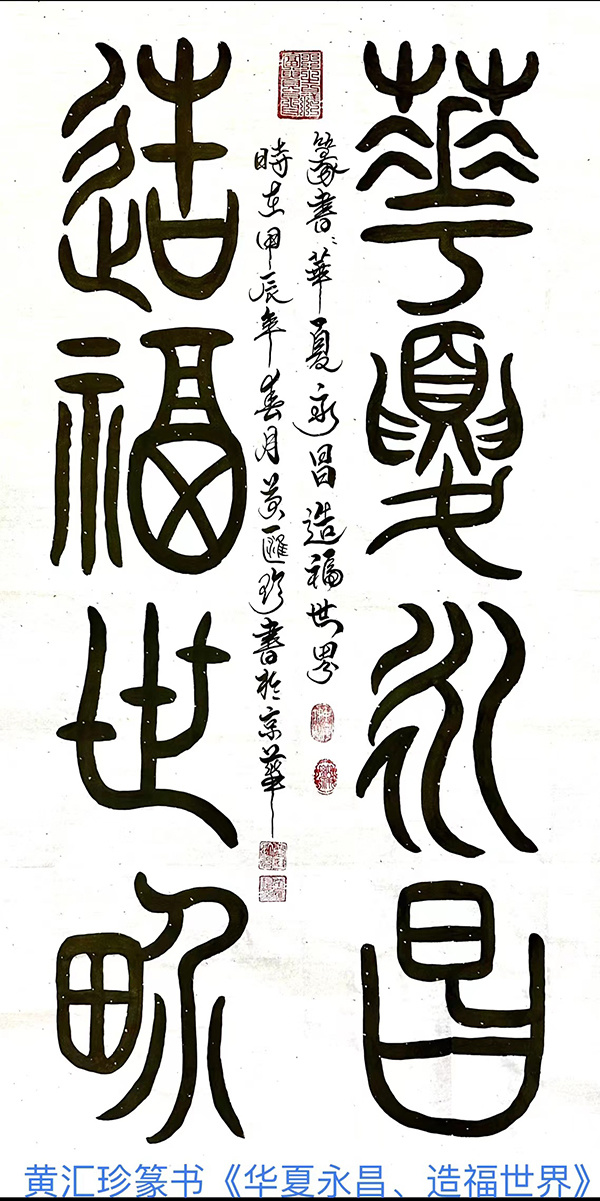 華夏永昌
造福世界
篆書：華夏永昌造福世界
時在甲辰年春月黃匯珍書於京華
黄汇珍篆书《华夏永昌、造福世界》